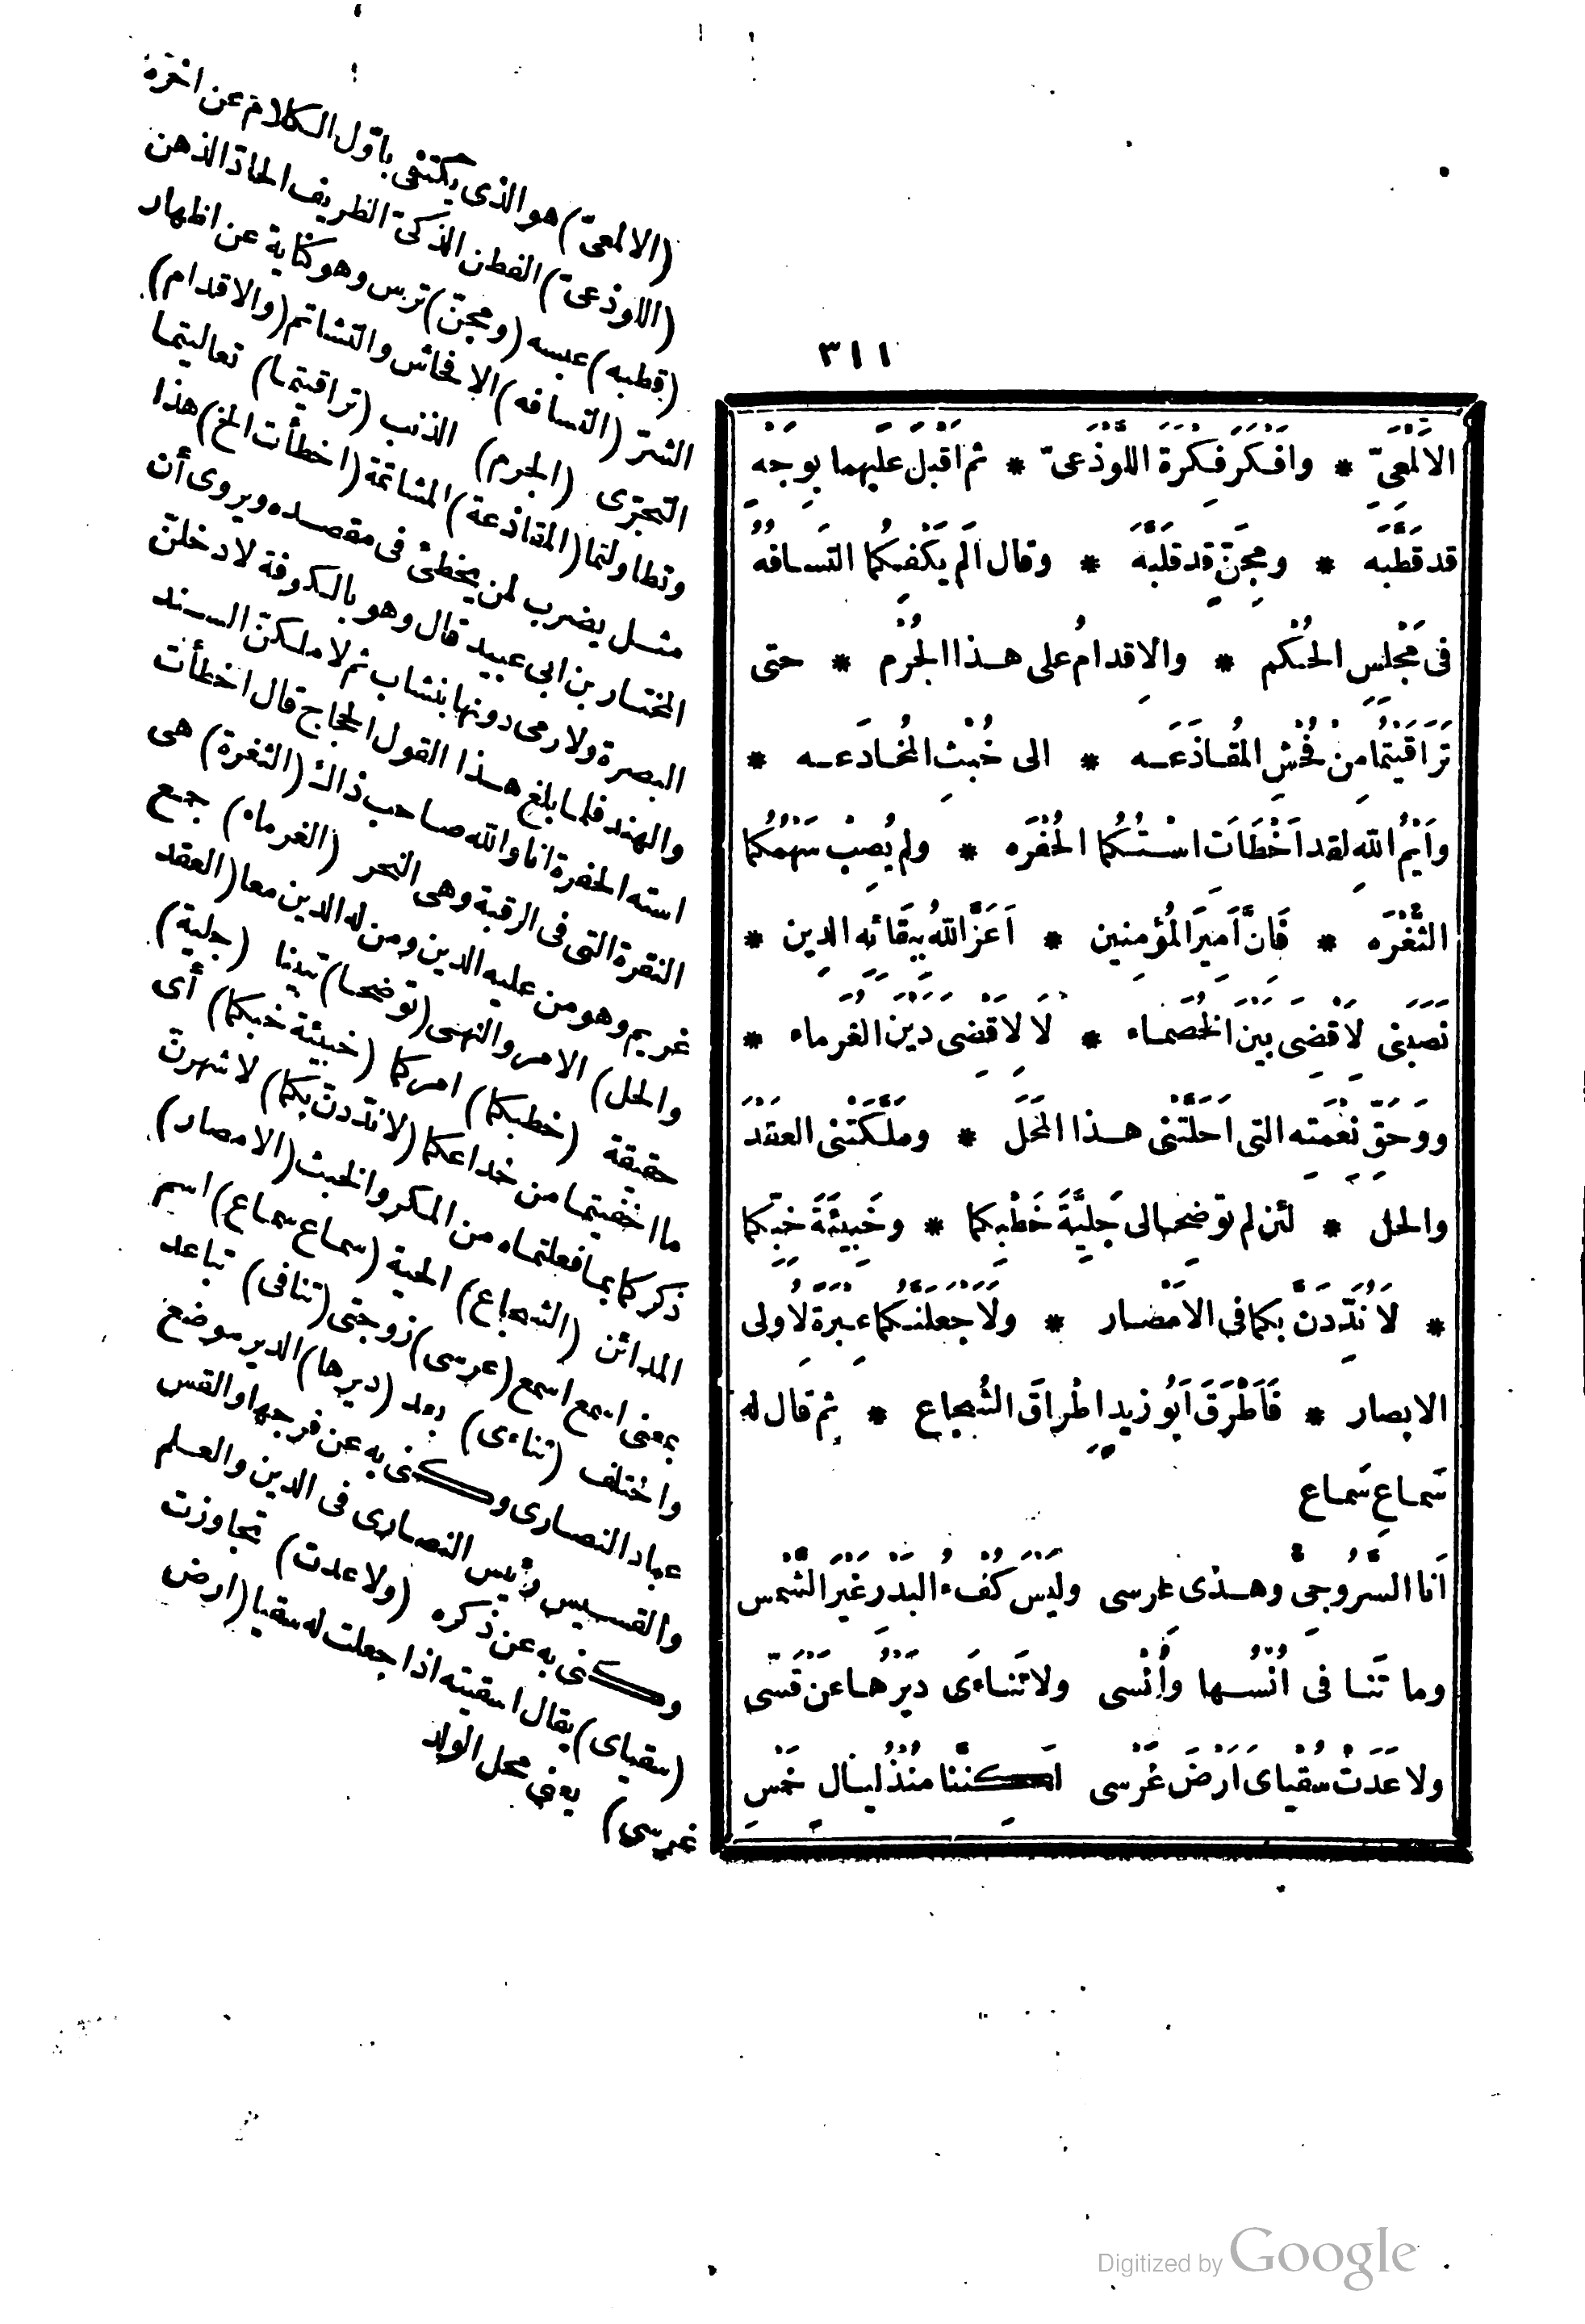 ٣١١
الاَلْمَعِيّ * وافْتَكَرَ فِكْرَةَ اللَّوْذَعِيّ * ثم اَقْبَلَ عليهما بِوَجْهٍ
قد قَطَّبَه * ومِجَنٍّ قد قَلَبَه * وقال اَلَم يَكْفِكُما التَسافُهُ
فى مَجْلِسِ الحُكْم * والاِقدامُ على هذا الجُرْم * حتى
تَرَاقَيْتُما مِنْ فُحْشِ المُقاذَعَه * الى خُبْثِ المُخادَعه *
واَيْمُ اللّهِ لقد اَخْطَاَت اسْتُكُما الحُفْرَه * ولم يُصِبْ سَهْمُكُما
الثُّغْرَه * فَاِنَّ أَمِيرَ المُؤمِنِين * اَعَزَّ اللّهُ بِبَقَائِه الدِين *
نَصَبَنى لِاَقْضِىَ بَيْنَ الخُصَماء * لَا لِاَقْضِىَ دَيْنَ الغُرماء *
ووَحَقِّ نِعْمَتِه التى اَحَلَّتْنى هذا المَحَلّ * ومَلَّكَتْنى العَقْدَ
والحل * لئن لم توضحا لى جَلِيَّةَ خَطْبِكما * وخَبِيئَةَ خِبِّكما
* لَاُنَدِّدَنَّ بكما فى الاَمْصار * ولَاَجْعَلَنَّكُما عِبْرَةً لِاُولى
الابصار * فَاَطْرَقَ اَبُو زيدٍ اِطْراقَ الشُّجاع * ثم قال له
سَماعِ سَماع
اَنا السَّرُوجِىُّ وهذى عِرسى ولَيْسَ كُفْءُ البَدْرِ غَيْرَ الشَّمْس
وما تَنافى اُنْسُها وأُنْسى ولا تَناءَى دَيْرُها عَنْ قَسّى
ولا عَدَتْ سُقْياىَ اَرْضَ غَرْسى لكننا مُنْذُ ليالٍ خَمْسِ
(الالمعىّ) هو الذى يكتفى باوّل الكلام عن اخره
(اللوذعىّ) الفطن الذكىّ الظريف الحادّ الذهن
(قطبه) عبسه (ومجنّ) ترس وهو كناية عن اظهار
الشرّ (التسافه) الافحاش والتشاتم (والاقدام)
التجرّى (الجرم) الذنب (تراقيتما) تعاليتما
وتطاولتما (المقاذعة) المشاتمة (اخطأت الخ) هذا
مثل يضرب لمن يخطئ فى مقصده ويروى أن
المختار بن ابى عبيد قال وهو بالكوفة لادخلنّ
البصرة ولا رمى دونها بنشاب ثم لاملكنّ السند
والهند فلما بلغ هذا القول الحجاج قال اخطأت
استه الحفرة انا والله صاحب ذاك (الثغرة) هى
النقرة التى فى الرقبة وهى النحر (الغرماء) جمع
غريم وهو من عليه الدين ومن له الدين معا (العقد
والحل) الامر والنهى (توضحا) تبينا (جلية)
حقيقة (خطبكما) امركما (خبيئة خبكما) أى
ما اخفيتما من خداعكما (لانددنّ بكما) لاشهرنّ
ذكركما بما فعلتماه من المكر والخبث (الامصار)
المدائن (الشجاع) الحية (سماع سماع) اسم
بمعنى اسمع اسمع (عرسى) زوجتى (تنافى) تباعد
واختلف (تناءى) بعد (ديرها) الدير موضع
عباد النصارى وكنى به عن فرجها والقس
والقسيس رئيس النصارى فى الدين والعلم
وكنى به عن ذكره (ولا عدت) تجاوزت
(سقياى) يقال اسقيته اذا جعلت له سقيا (ارض
غرسى) يعنى محل الولد
Digitized by Google